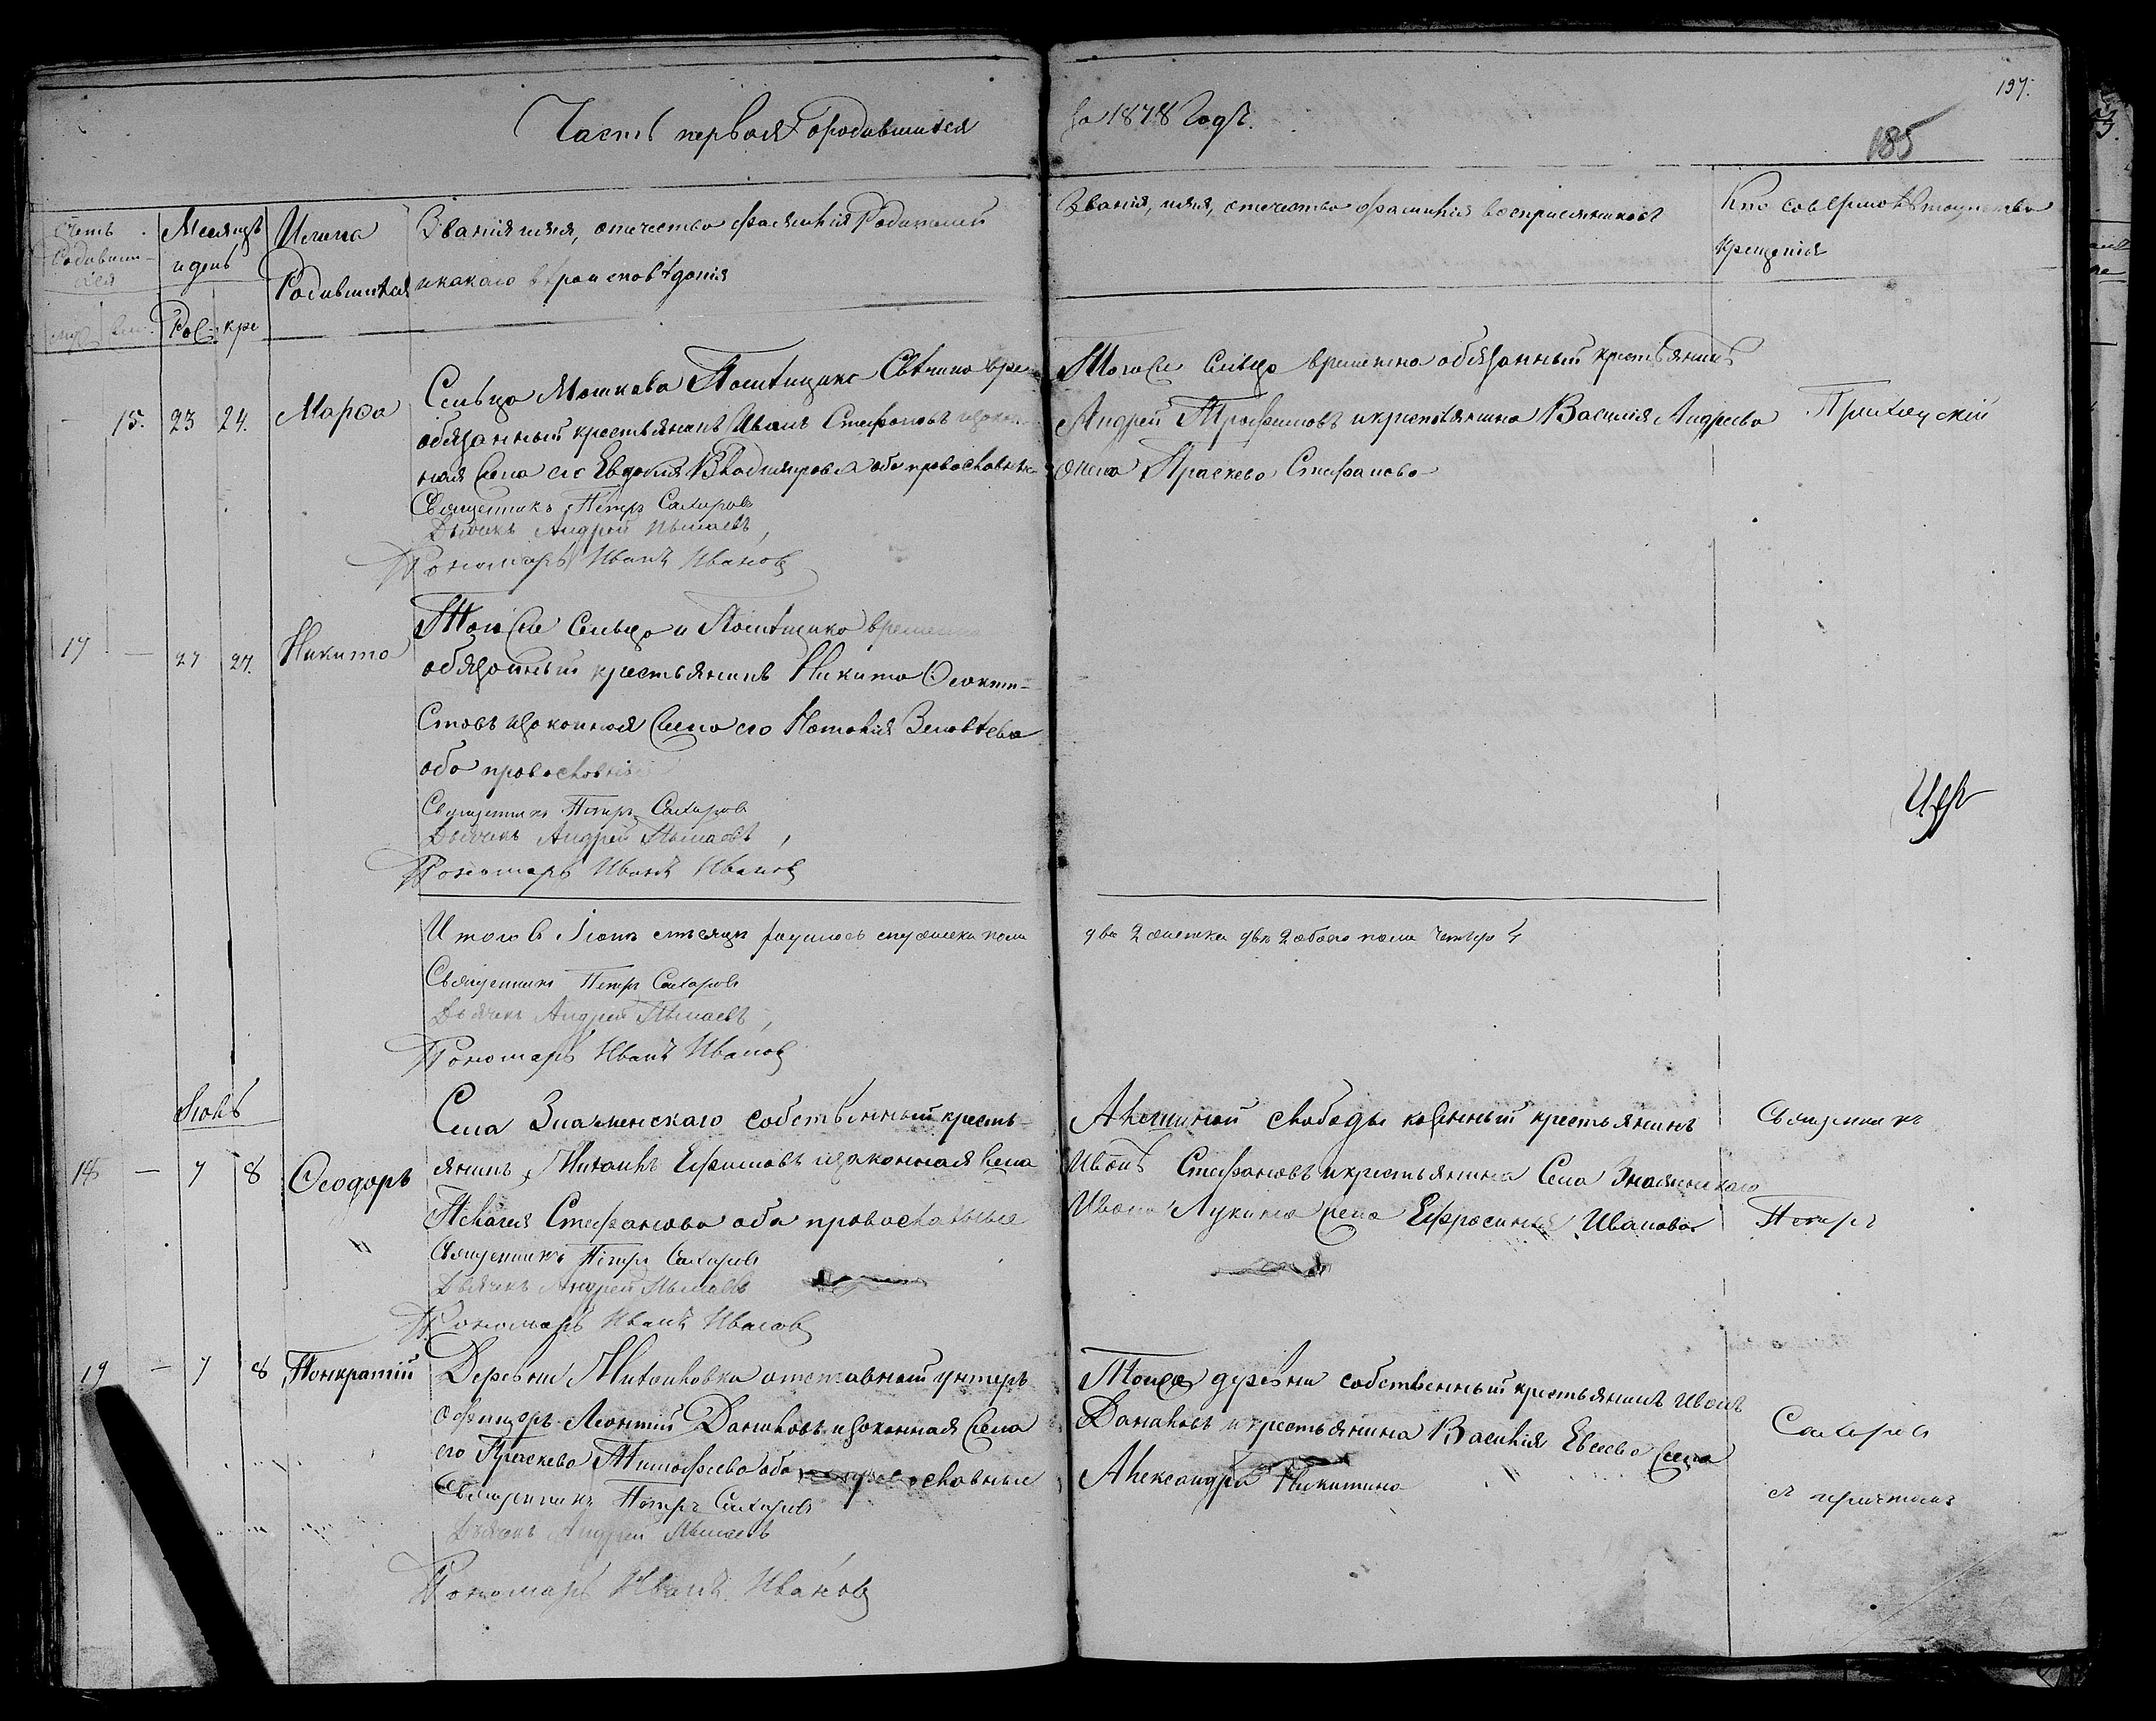 197.
185
Часть первая о родившихся
за 1878 Годъ.
Счетъ родивших-ся
Месяцъ и день
Имена Родившихся
Званія имя, отчество фамилія Родителей
и какаго вѣроисповѣданія
Званія, имя, отчество фамилія восприемниковъ
Кто совершалъ таинство
крещенія
муж. жен.
Рож. кре
15. 23 24. Марфа
Сельца Мошкова Помѣщика вре-
обязанный крестьянинъ Иванъ Стефановъ и закон-
ная жена его Евдокия Владимирова оба православн.
Священникъ Петръ Сахаровъ
Дьячекъ Андрей
Пономарь Иванъ Ивановъ
Тогоже Сельца временно обязанный крестьянинъ
Андрей Трофимовъ и крестьянина Василія Андреева
жена Праскева Стефанова
17 27 27. Никита
Тогоже Сельца и Помѣщика временно
обязанный крестьянинъ Никита Феокти-
стовъ и законная жена его Наталія
оба православные
Священникъ Петръ Сахаровъ
Дьячекъ Андрей
Пономарь Иванъ Ивановъ
Итого в Іюнѣ месяцѣ родилось мужеска пола
два 2 женска двѣ 2 обоего пола четыре 4
Священникъ Петръ Сахаровъ
Дьячекъ Андрей
Пономарь Иванъ Ивановъ
Іюль
18 7 8 Феодоръ
Села Знаменскаго собственный кресть-
янинъ Михаилъ Ефимовъ и законная жена
Пелагея Стефанова оба православные
Священникъ Петръ Сахаровъ
Дьячекъ Андрей
Пономарь Иванъ Ивановъ
слободы казенный крестьянинъ
Иванъ Стефановъ и крестьянина Села Знаменскаго
Ивана Лукина жена Ефросиния Иванова
Священникъ
Петръ
19 7 8 Панкратій
Деревни Михайловки отставный унтеръ
офицеръ Леонтій Даниловъ и законная жена
его Праскева Тимофеева оба православные
Священникъ Петръ Сахаровъ
Дьячекъ Андрей
Пономарь Иванъ Ивановъ
Тойже деревни собственный крестьянинъ Иванъ
Даниловъ и крестьянина Василія Евсеева жена
Александра Никитина
Сахаровъ
с причтомъ